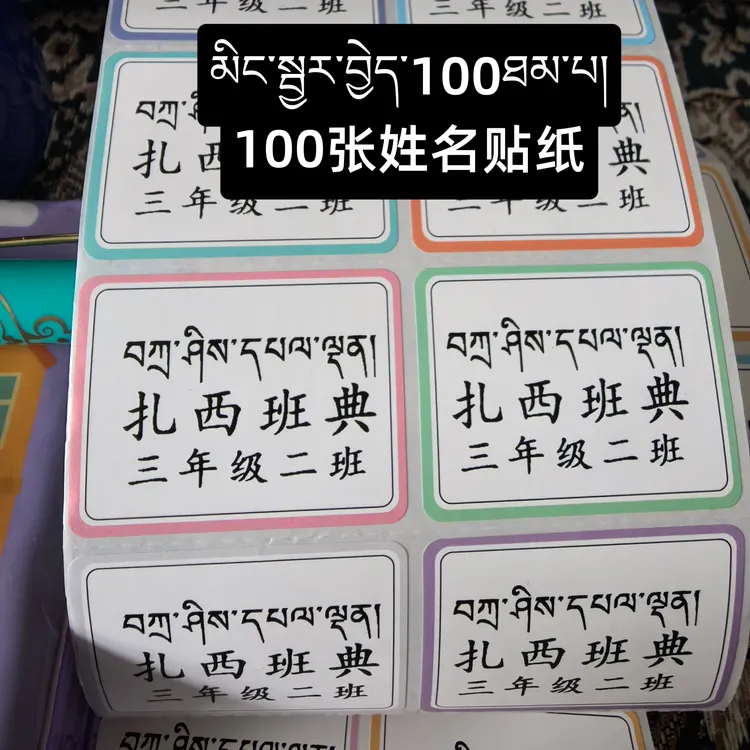 三年级二班
三年级二班
མིང་སྦྱར་བྱེད་100ཐམ་པ།
100张姓名贴纸
བཀྲ་
扎西
三年级二班
典
三年级二班
བཀྲ་ཤིས་དཔལ་ལྡན།
扎西班典
三年级二班
བཀྲ་ཤིས་དཔལ་ལྡན།
扎西班典
三年级二班
བཀྲ་ཤིས་དཔལ་ལྡན།
扎西班典
三年级二班
བཀྲ་ཤིས་དཔལ་ལྡན།
扎西班典
三年级二班
བཀྲ་ཤིས་དཔལ་ལྡན།
བཀྲ་ཤིས་དཔལ་ལྡན།